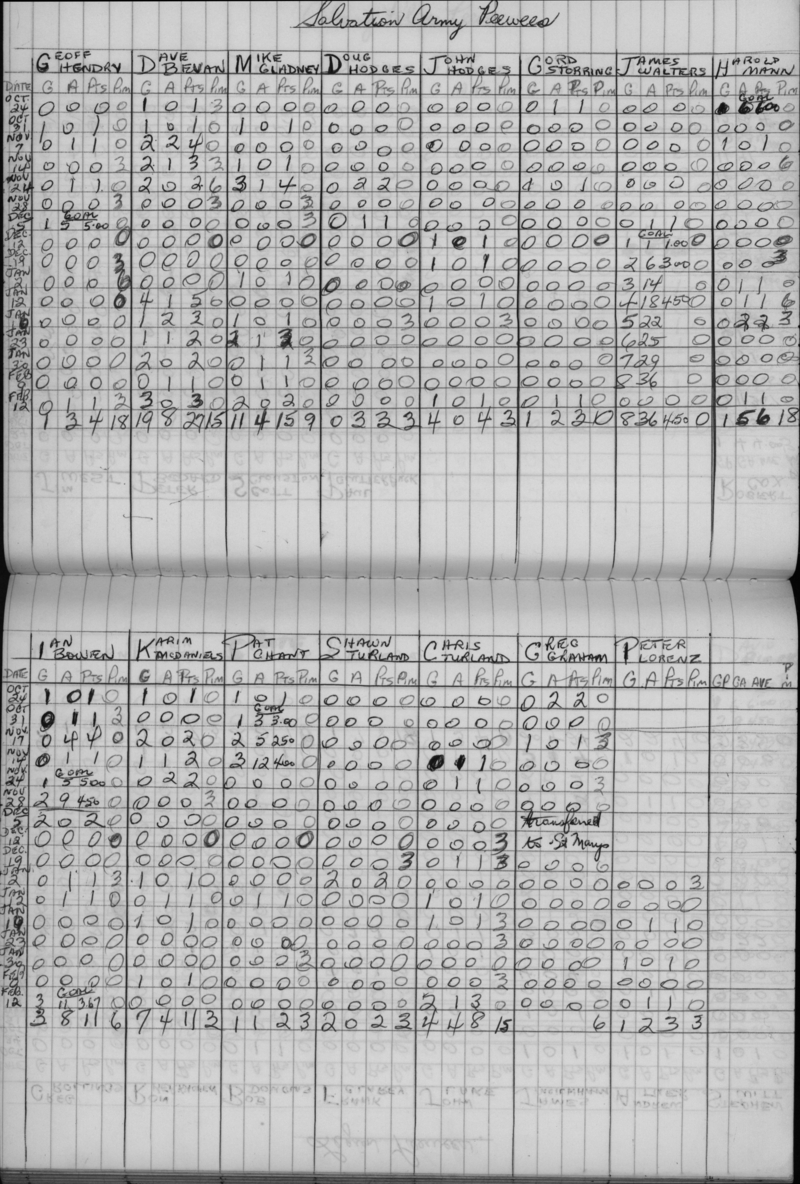 Salvation Army Peewees
GEOFF HENDRY DAVE BEVAN MIKE GLADNEY DOUG HODGES JOHN HODGES GORD STORRING JAMES WALTERS HAROLD MANN
DATE G A Pts Pim G A Pts Pim G A Pts Pim G A Pts Pim G A Pts Pim G A Pts Pim G A Pts Pim G A Pts Pim
OCT 24 0 0 0 0 1 0 1 3 0 0 0 0 0 0 0 0 0 0 0 0 0 1 1 0 0 0 0 0 GOAL
OCT 31 1 0 1 0 1 0 1 0 1 0 1 0 0 0 0 0 0 0 0 0 0 0 0 0 0 0 0 0 0 0 0 0
NOV 7 0 1 1 0 2 2 4 0 0 0 0 0 0 0 0 0 0 0 0 0 0 0 0 0 0 0 0 0 1 0 1 0
NOV 14 0 0 0 3 2 1 3 3 1 0 1 0 0 0 0 0 0 0 0 0 0 0 0 0 0 0 0 0 0 0 0 6
NOV 24 0 1 1 0 2 0 2 6 3 1 4 0 0 2 2 0 0 0 0 0 1 0 1 0 0 0 0 0 0 0 0 0
NOV 28 0 0 0 3 0 0 0 3 0 0 0 3 0 0 0 0 0 0 0 0 0 0 0 0 0 0 0 0 0 0 0 0
DEC 5 1 GOAL 5 5.00 0 0 0 0 0 0 0 0 3 0 1 1 0 0 0 0 0 0 0 0 0 0 1 1 0 0 0 0 0
DEC 12 0 0 0 0 0 0 0 0 0 0 0 0 0 0 0 0 1 0 1 0 0 0 0 0 GOAL 1 1 1.00 0 0 0 0 0
DEC 19 0 0 0 3 0 0 0 0 0 0 0 0 0 0 0 0 1 0 1 0 0 0 0 0 2 6 3.00 0 0 0 0 3
JAN 2 0 0 0 6 0 0 0 0 1 0 1 0 0 0 0 0 0 0 0 0 0 0 0 0 3 14 0 1 1 0
JAN 12 0 0 0 0 4 1 5 0 0 0 0 0 0 0 0 0 1 0 1 0 0 0 0 0 4 18 4.50 0 0 1 1 6
JAN 0 0 0 0 1 2 3 0 1 0 1 0 0 0 0 3 0 0 0 3 0 0 0 0 5 22 0 2 2 3
JAN 23 0 0 0 0 1 1 2 0 2 1 3 0 0 0 0 0 0 0 0 0 0 0 0 0 6 25 0 0 0 0
JAN 30 0 0 0 0 2 0 2 0 0 1 1 3 0 0 0 0 0 0 0 0 0 0 0 0 7 29 0 0 0 0
FEB 0 0 0 0 0 1 1 0 0 1 1 0 0 0 0 0 0 0 0 0 0 0 0 0 8 36 0 0 0 0
FEB 12 0 1 1 3 3 0 3 0 2 0 2 0 0 0 0 0 1 0 1 0 0 1 1 0 0 0 0 0 0 1 1 0
1 3 4 18 19 8 27 15 11 4 15 9 0 3 3 3 4 0 4 3 1 2 3 0 8 36 4.50 0 1 5 6 18
IAN BOWEN KARIM MCDANIELS PAT CHANT SHAWN TURLAND CHRIS TURLAND GREG GRAHAM PETER LORENZ
DATE G A Pts Pim G A Pts Pim G A Pts Pim G A Pts Pim G A Pts Pim G A Pts Pim G A Pts Pim GP GA AVE Pim
OCT 24 1 0 1 0 1 0 1 0 1 0 1 0 0 0 0 0 0 0 0 0 0 2 2 0
OCT 31 0 1 1 3 0 0 0 0 GOAL 1 3 3.00 0 0 0 0 0 0 0 0 0 0 0 0 0
NOV 17 0 4 4 0 2 0 2 0 2 5 2.50 0 0 0 0 0 0 0 0 1 0 1 3
NOV 14 0 1 1 0 1 1 2 0 3 12 4.00 0 0 0 0 0 0 1 1 0 0 0 0 0
NOV 24 1 GOAL 5 5.00 0 0 2 2 0 0 0 0 0 0 0 0 0 0 1 1 0 0 0 0 3
NOV 28 2 9 4.50 0 0 0 0 3 0 0 0 0 0 0 0 0 0 0 0 0 0 0 0 0
DEC 5 2 0 2 0 0 0 0 0 0 0 0 0 0 0 0 0 0 0 0 0 transferred
DEC 12 0 0 0 0 0 0 0 0 0 0 0 0 0 0 0 0 0 0 0 3 to St Marys
DEC. 19 0 0 0 0 0 0 0 0 0 0 0 0 0 0 0 3 0 1 1 3 0 0 0 6
JAN 2 0 1 1 3 1 0 1 0 0 0 0 0 2 0 2 0 0 0 0 0 0 0 0 0 0 0 0 3
JAN 12 0 1 1 0 0 1 1 0 0 1 1 0 0 0 0 0 1 0 1 0 0 0 0 0 0 0 0 0
JAN 0 0 0 0 1 0 1 0 0 0 0 0 0 0 0 0 1 0 1 3 0 0 0 0 0 1 1 0
JAN 23 0 0 0 0 0 0 0 0 0 0 0 0 0 0 0 0 0 0 0 3 0 0 0 0 0 0 0 0
JAN 30 0 0 0 0 0 0 0 0 0 0 0 3 0 0 0 0 0 0 0 0 0 0 0 0 1 0 1 0
FEB 0 0 0 0 1 0 1 0 0 0 0 0 0 0 0 0 0 0 0 3 0 0 0 0
FEB. 12 3 GOAL 11 3.67 0 0 0 0 0 0 0 0 0 0 0 0 0 2 1 3 0 0 0 0 0 0 1 1 0
3 8 11 6 7 4 11 3 1 1 2 3 2 0 2 3 4 4 8 15 6 1 2 3 3